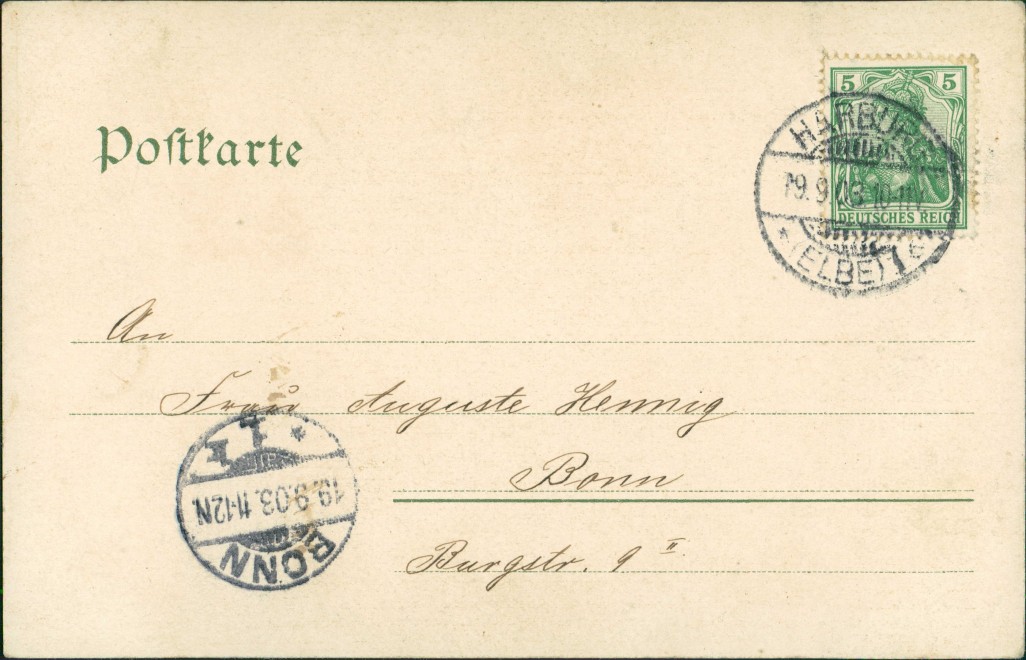 Postkarte
5 5
DEUTSCHES REICH
HARBURG
19.9.03. 10-11V.
* (ELBE) 1 c
An
Frau Auguste Hennig
Bonn
Burgstr. 9 II.
BONN
19.9.03. 11-12N
* 1